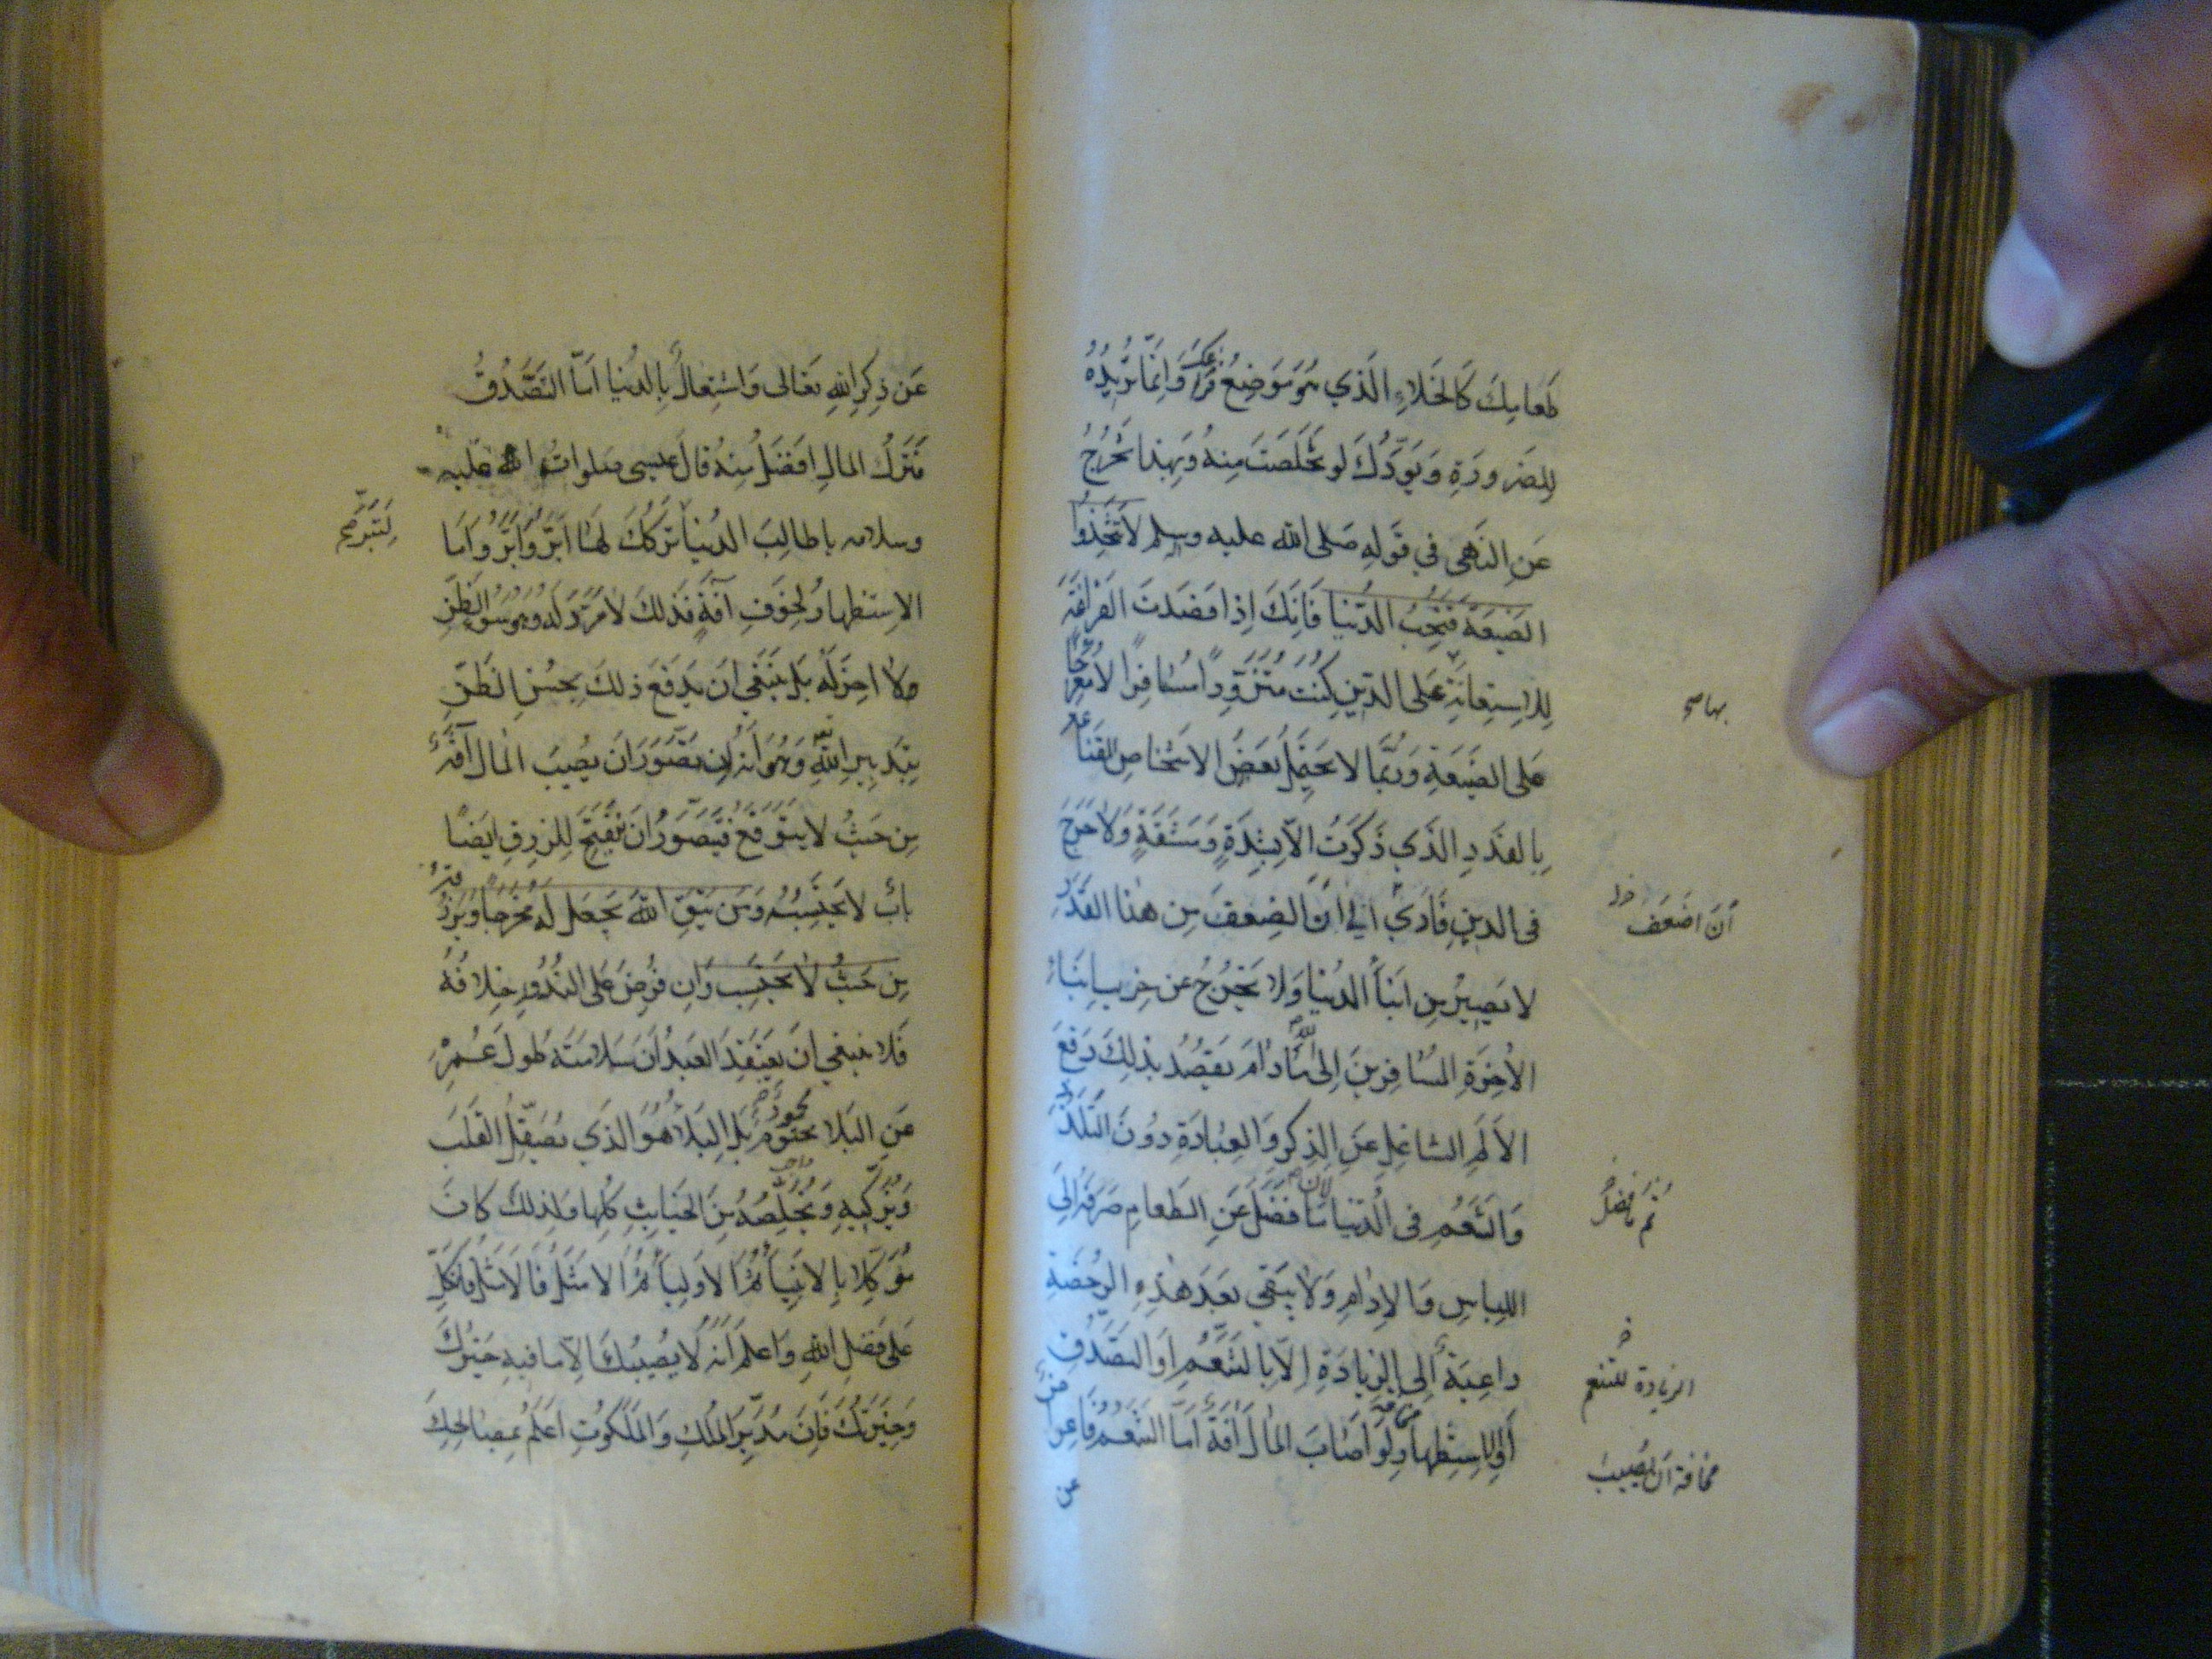 طعامك كَالخَلاءِ الَّذي هُوَ مَوضِعُ فَراغك وَإنَّما تُريدُهُ
لِلضَرورَةِ وَيَوَدُّكَ لو تَخَلَّصَتَ مِنهُ وَبِهذا تَخرُجُ
عَنِ النَهي في قَولِهِ صَلى الله عليه وسلم لا تَتَّخِذُوا
الضَيعَةَ فَتُحِبُّ الدُّنيا فَإنَّكَ إذا قصَدتَ الفَراغَةَ
لِلاستِعانَةِ عَلى الدّينِ كُنتَ مُتَزَوِّداً مُسافِرًا لا مُعَرِّجًا
بها صح
عَلى الضَّيعَةِ وَرُبَّما لا يَحتَمِلُ بَعضُ الأشخاصِ القَناعة
بِالقَدرِ الَّذي ذَكَرتُ إلّا بِشِدَّةٍ وَمَشَقَّةٍ وَلا حَرَجَ
في الدينِ فَأرى أنّ الضِعفَ مِن هذا القَدرِ
أنّ أضعَف
لا يَصيرُ مِن أبناء الدُنيا وَلا يَخرُجُ عن حِزب أبناء
الأخِرَةِ المُسافِرينَ إلى الله مادامَ يَقصُدُ بِذلِكَ دَفعَ
الألَمِ الشاغِلِ عَنِ الذِكرِ وَالعِبادَةِ دونَ التَلَذُّذِ
وَالتَّنَعُّمِ في الدُّنيا ما فَضَلَ عَنِ الطَعامِ صَرَفَهُ إلى
ثم ما فضلَ
اللِباسِ وَالإدامِ وَلا يَبقى بَعدَ هذِهِ الرُخصَةِ
داعِيَةٌ إلى الزِيادَةِ إلّا بالتَنَعُّمِ أوِ التَصَدُّقِ
الزيادة للتنعم
أوِ الاستِظهارِ لَو أصابَ المالَ آفَةٌ أمّا التَنَعُّم فَإعراض
مخافة أن يُصيبَ
عن
عَن ذِكرِ اللهِ تَعالى وَاشتِغالٌ بِالدُنيا أمّا التَصَدُّقُ
فَتَركُ المالِ أفضَلُ مِنهُ قالَ عيسى صلوات الله عليه
وسلامه يا طالِبَ الدُنيا تَركُكَ لها أبَرُّ وَأبَرُّ وَأمّا
لِتَبَرَّ صح
الاستظهارُ لِخَوفِ آفَةٍ فَذلِكَ لا مَرَدَّ له وَهو سُوءُ الظَنِّ
ولا آخِرَ لَهُ بَل يَنبَغي أن يَدفَعَ ذلِكَ بِحُسنِ الظَنِّ
بِتَدبيرِ اللهِ وَهُوَ أنه إن تَصَوَّرَ أن يُصيبَ المالَ آفَةٌ
مِن حَيثُ لا يَتَوَقَّعُ فَيَتَصَوَّرُ أن يَنفَتِحَ لِلرِزقِ أيضًا
بابٌ لا يَحتَسِبُهُ وَمَن يَتَّقِ اللهَ يَجعَل لَهُ مَخرَجًا وَيَرزُقهُ
مِن حَيثُ لا يَحتَسِب وَإن فُرِضَ عَلى النُدُورِ خِلافُهُ
فَلا ينبغي أن يَعتَقِدَ العَبدُ أنَّ سَلامَتَهُ طولَ عُمرِهِ
عَنِ البَلاء محتومٌ بَلِ البَلاءُ هُوَ الَّذي يُصَيقِلُ القَلبَ
وَيُزَكّيهِ وَيُخَلِّصُهُ مِنَ الخَبائِثِ كُلِّها وَلِذلِكَ كانَ
مُوَكَّلًا بِالأنبِياء ثُمَّ الأولِياء ثُمَّ الأمثَلُ فَالأمثَلُ فَاتَّكِل
عَلى فَضلِ اللهِ وَاعلَم أنه لا يُصيبُكَ إلّا ما فيهِ خَيرُكَ
وَخِيَرَتُكَ فَإنَّ مُدَبِّرَ المُلكِ وَالمَلَكوتِ أعلَمُ بِمَصالِحِكَ